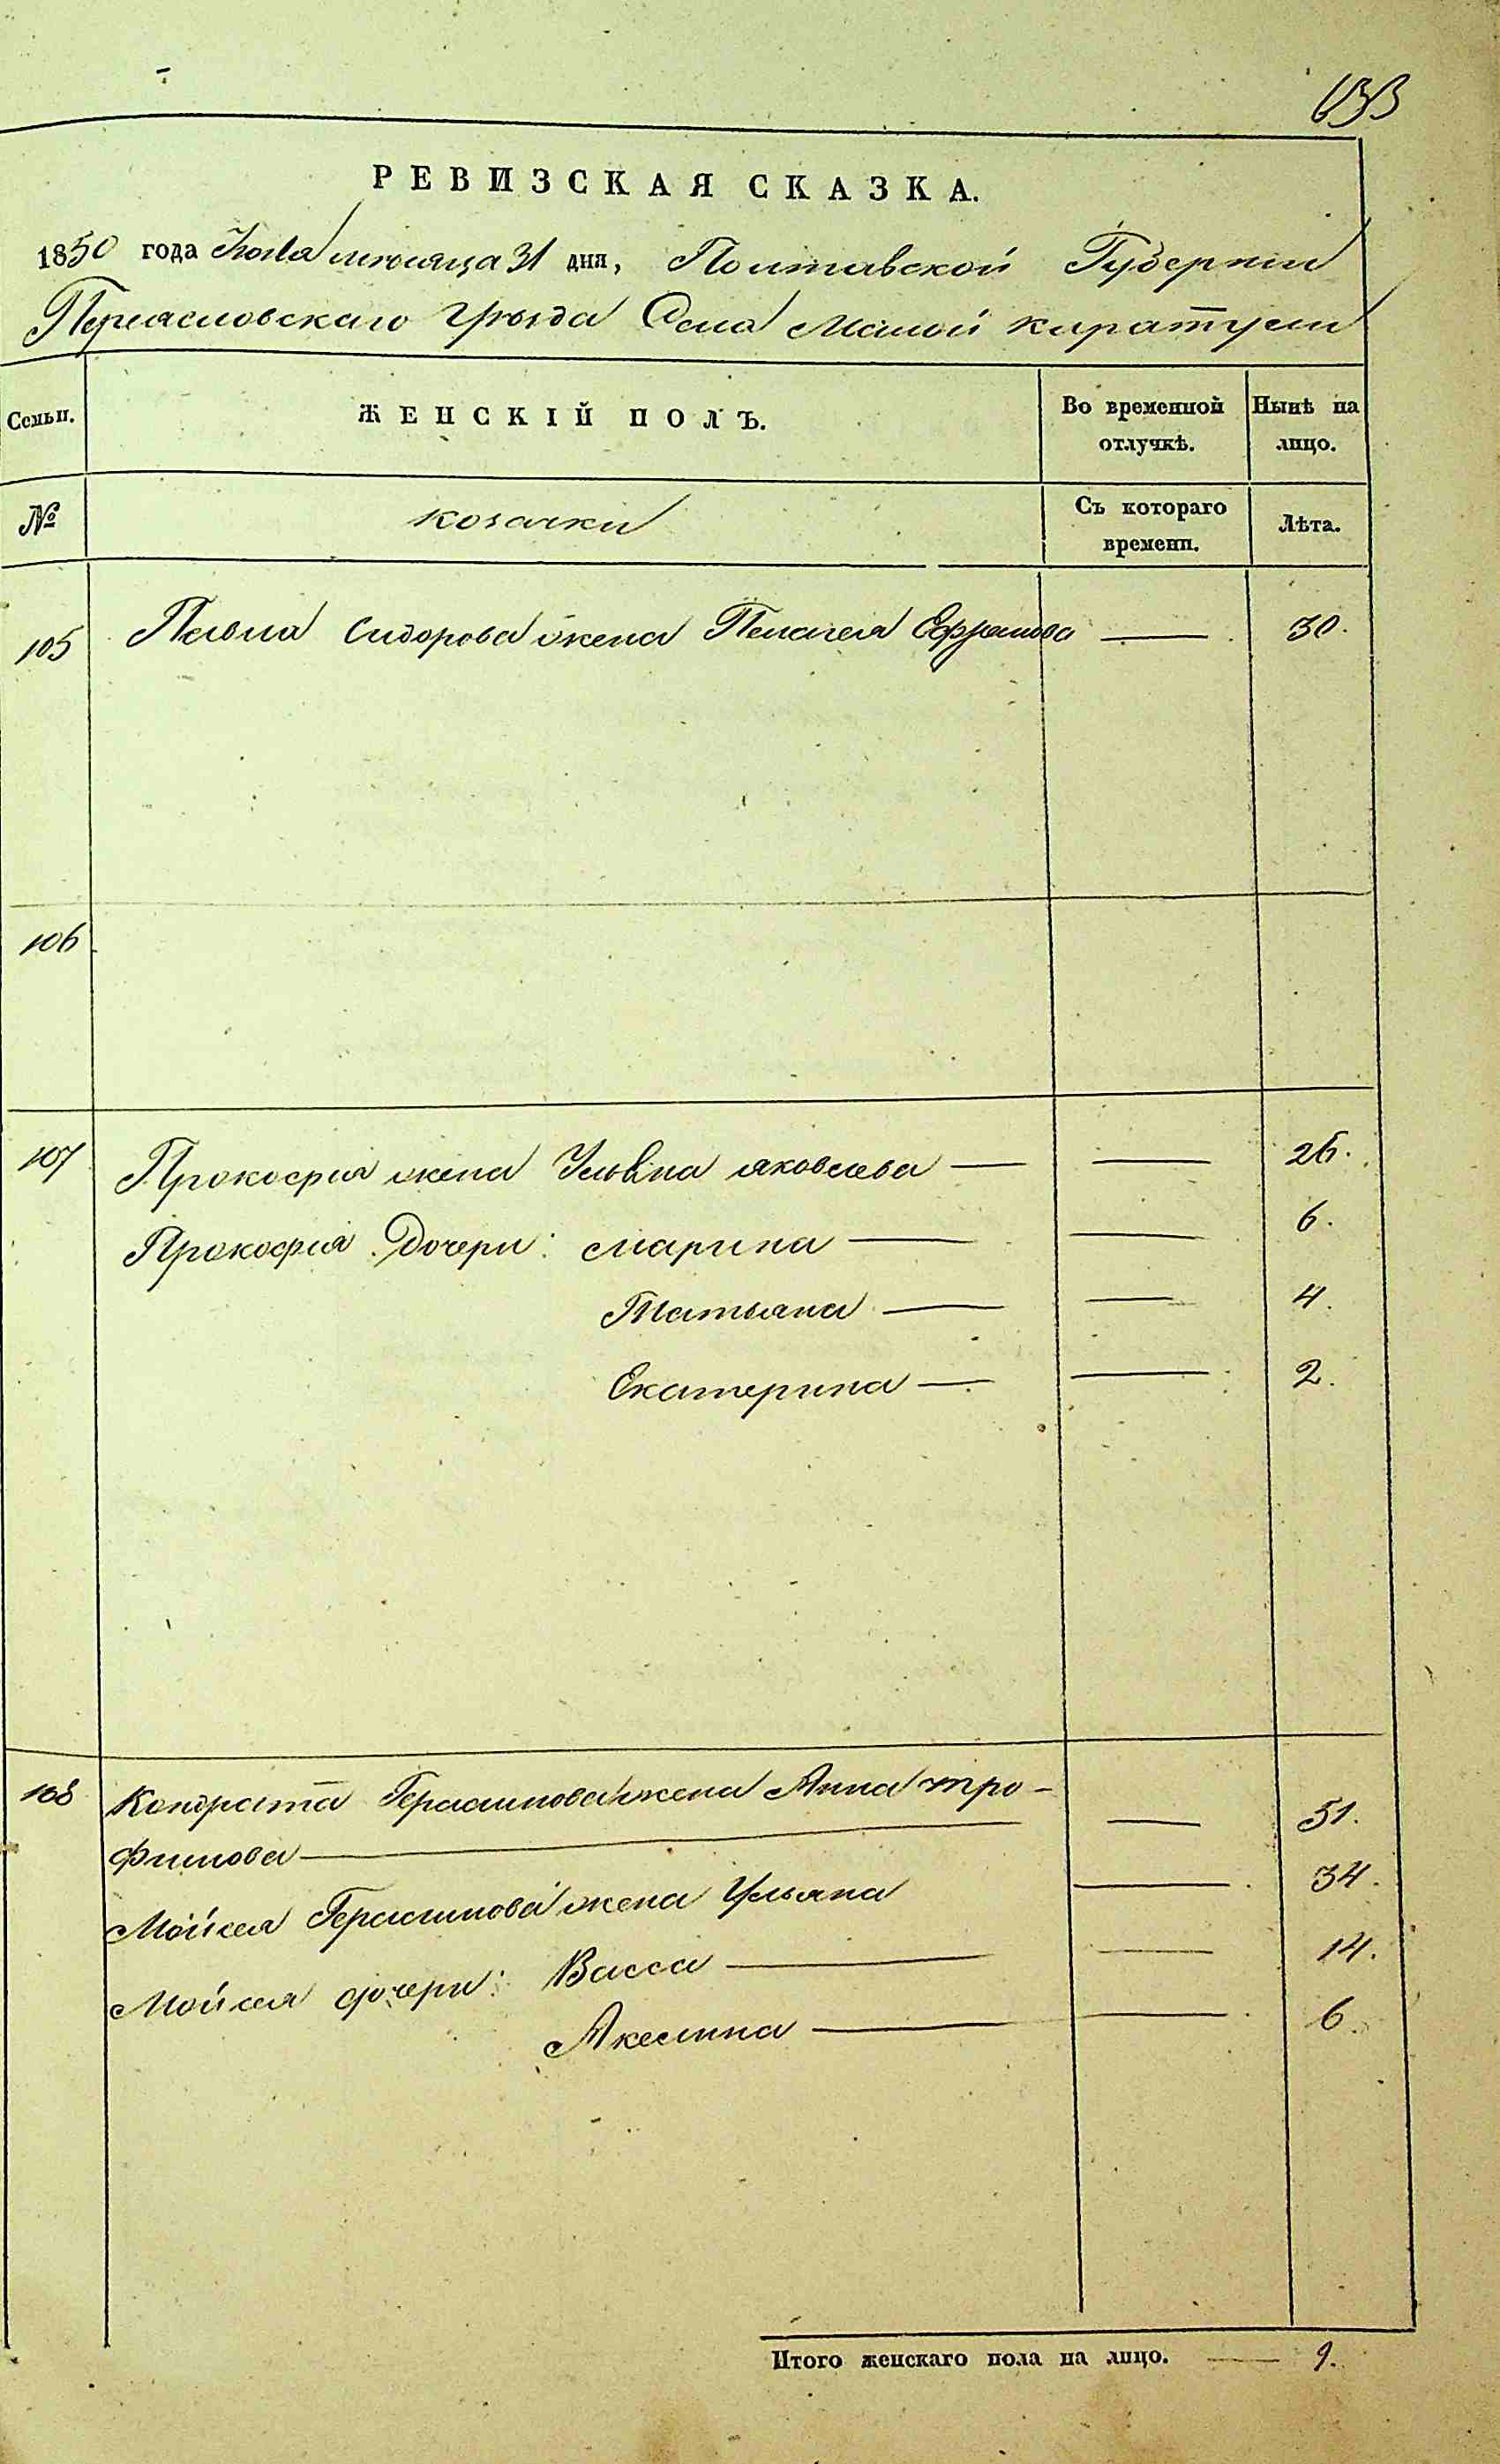 633
РЕВИЗСКАЯ СКАЗКА.
1850 года Іюля мѣсяца 31 дня, Полтавской Губерніи
Переяславскаго Уѣзда Села Малой каратули
Семьи. ЖЕНСКІЙ ПОЛЪ. Во временной отлучкѣ. Нынѣ на лицо.
№ козачки Съ котораго времени. Лѣта.
105 Павла Сидорова жена Пелагея — 30.
106
107 Прокофія жена Ульяна яковлева — — 26.
Прокофія Дочери: Марина — — 6.
Татьяна — — 4.
Екатерина — — 2.
108 Кондрата Герасимова жена Анна тро-
фимова — — 51.
Мойсея Герасимова жена Ульяна — 34.
Мойсея дочери: Васса — — 14.
Акелина — — 6.
Итого женскаго пола на лицо. — 9.